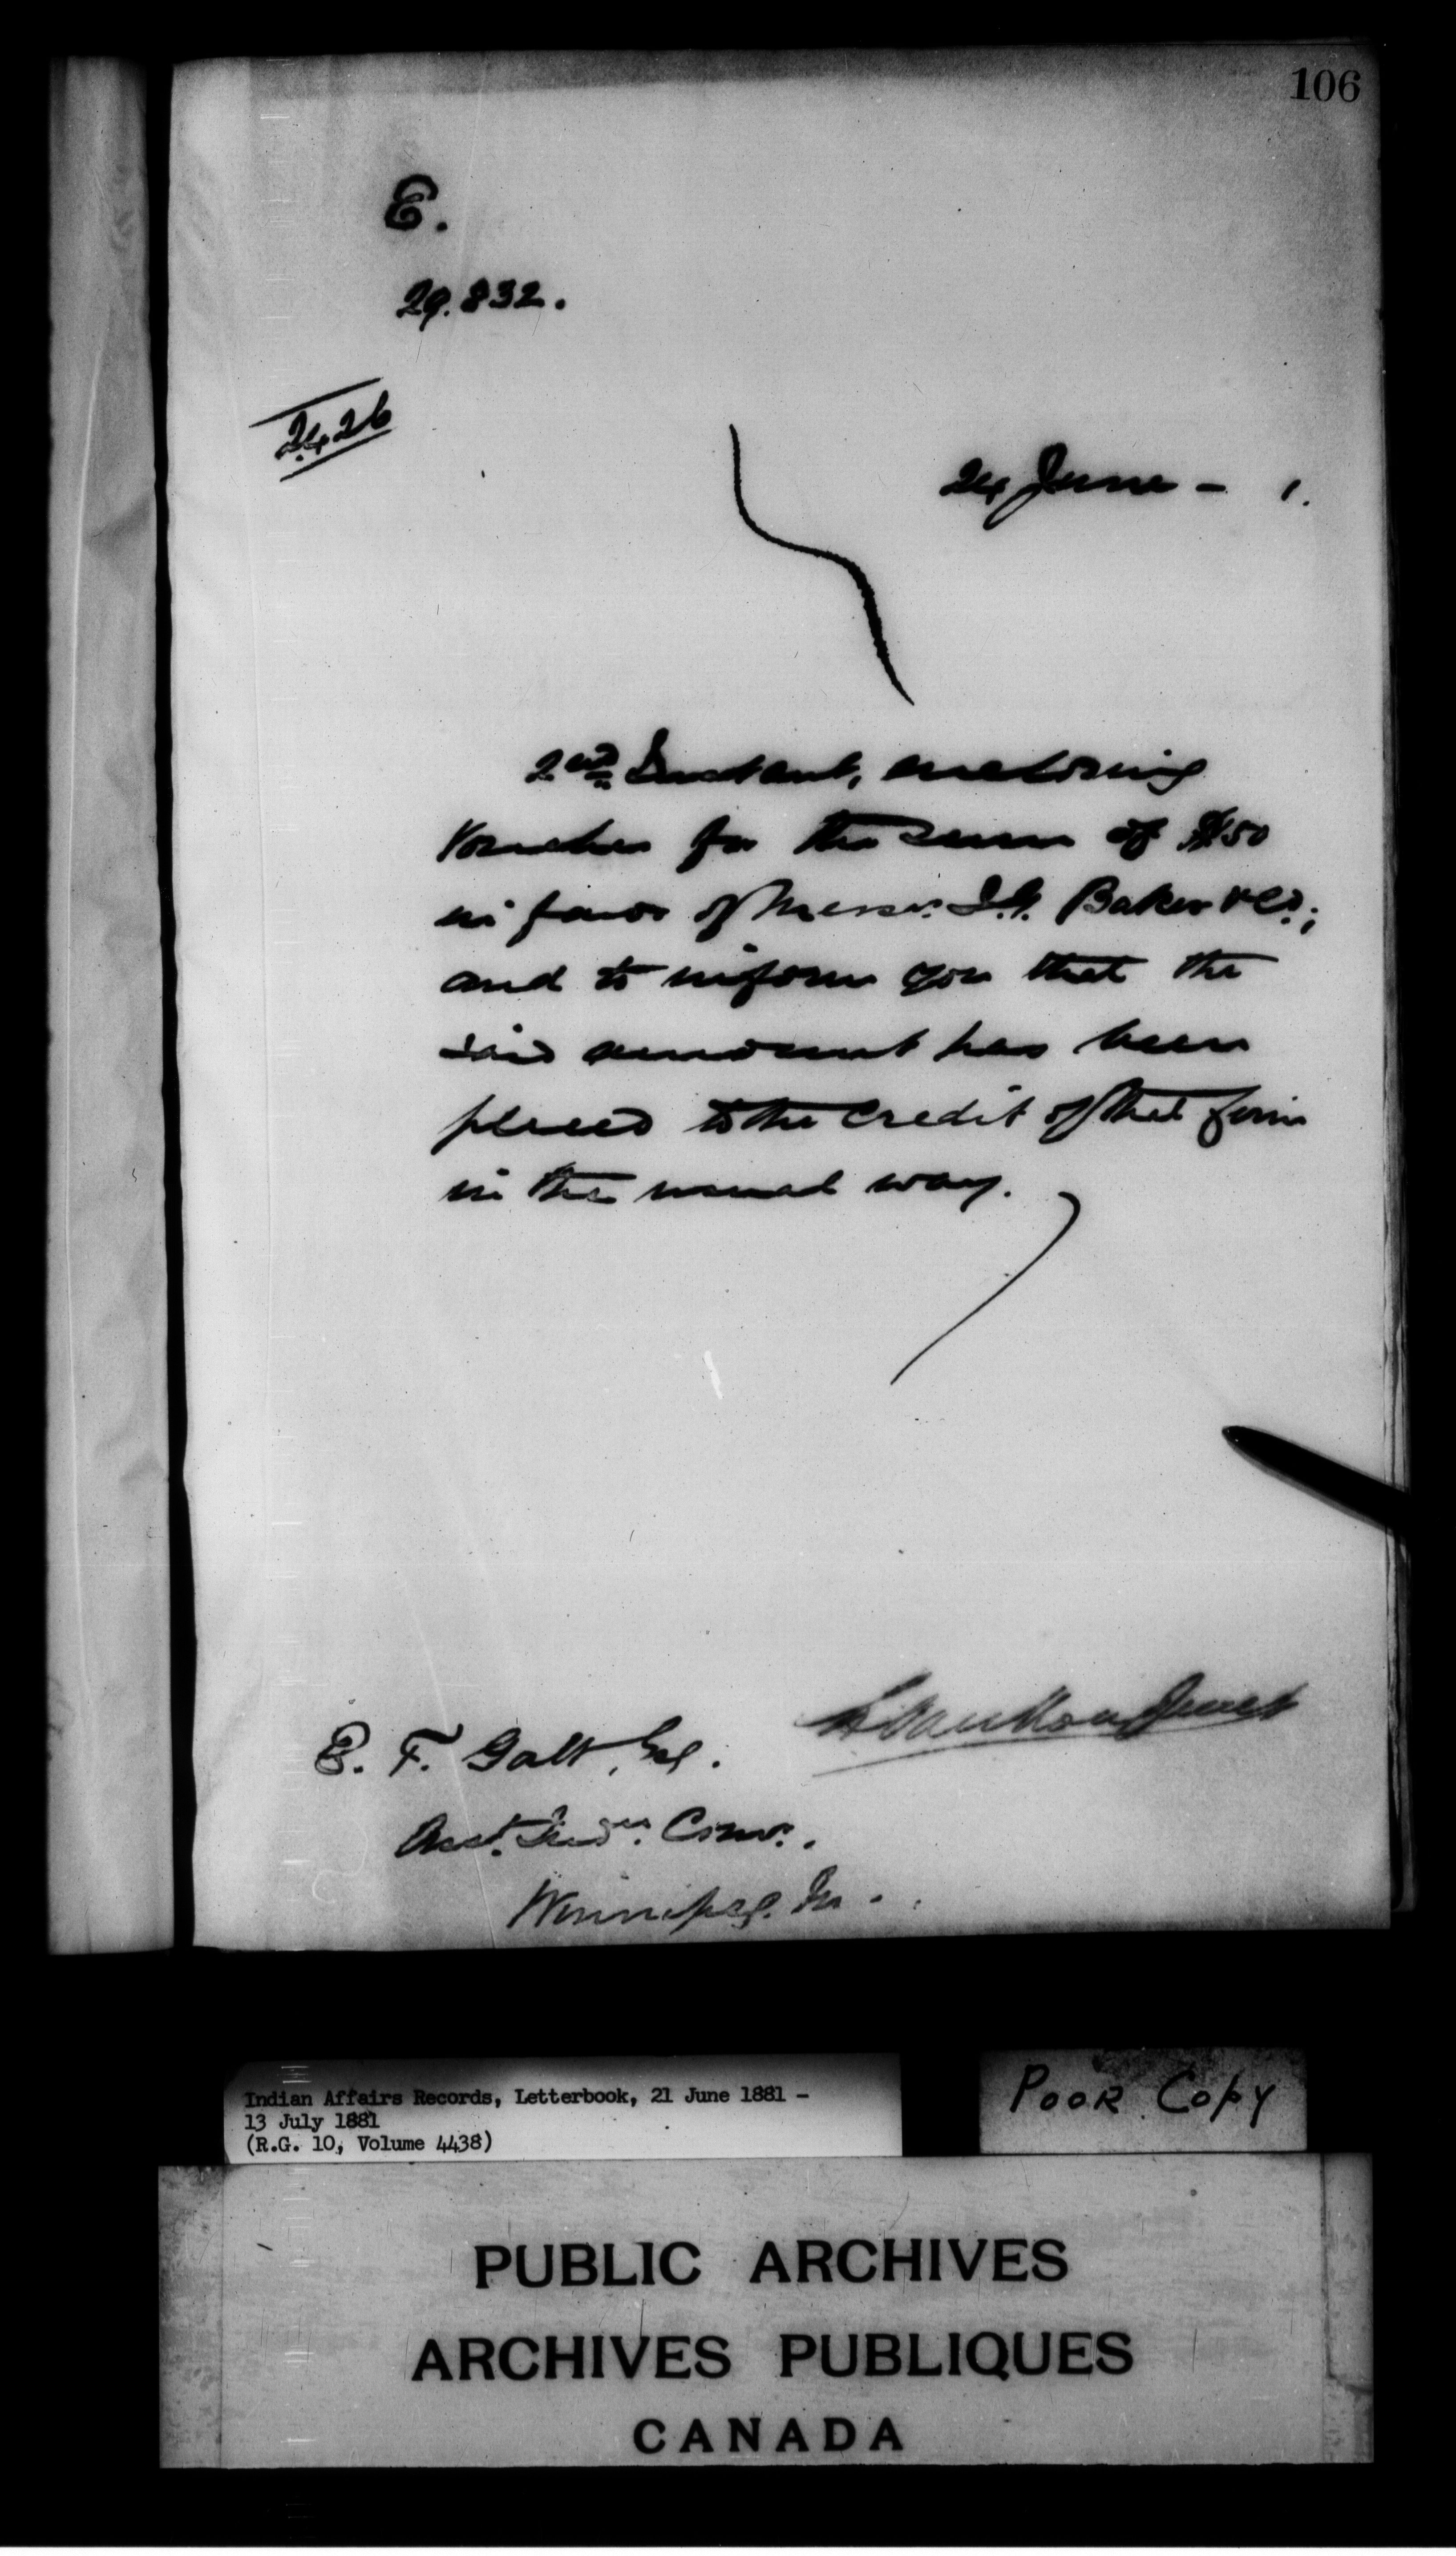 106
E.
29.832.
2426
24 June - 1.
2nd Instant, enclosing
Voucher for the sum of $50
in favor of Messrs. I.G. Baker & Co.;
and to inform you that the
said amount has been
placed to the credit of that firm
in the usual way.
L. Vankoughnet
E. F. Galt, Esq.
Asst. Indn. Comr.,
Winnipeg. M.
Indian Affairs Records, Letterbook, 21 June 1881 -
13 July 1881
(R.G. 10, Volume 4438)
POOR COPY
PUBLIC ARCHIVES
ARCHIVES PUBLIQUES
CANADA